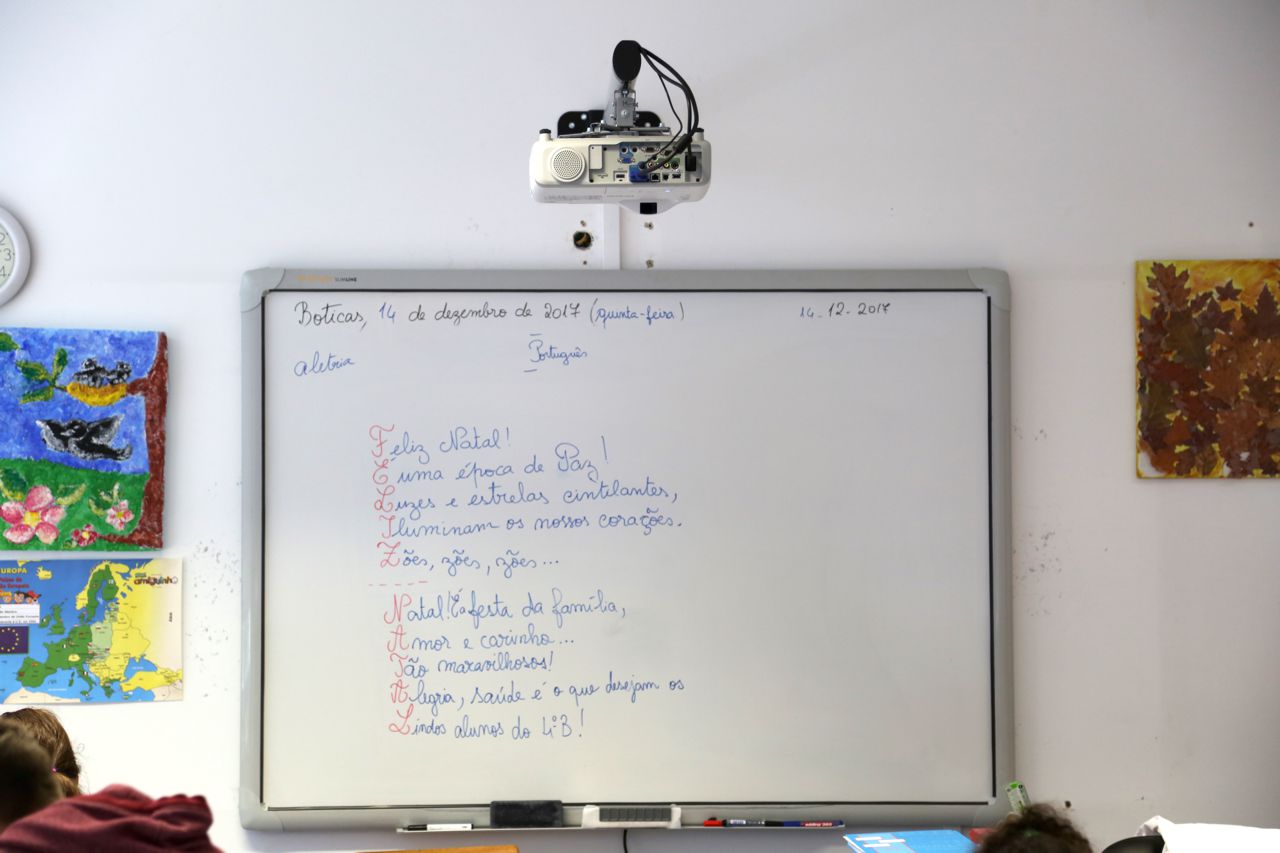 Boticas, 14 de dezembro de 2017 (quinta-feira)
14. 12. 2017
aletria
Português
Feliz Natal!
É uma época de Paz!
Luzes e estrelas cintilantes,
Iluminam os nossos corações.
Zões, zões, zões...
Natal! É a festa da família,
Amor e carinho...
Tão maravilhosos!
Alegria, saúde é o que desejam os
Lindos alunos do 4.ºB!
EUROPA
amiguinho
2
3
4